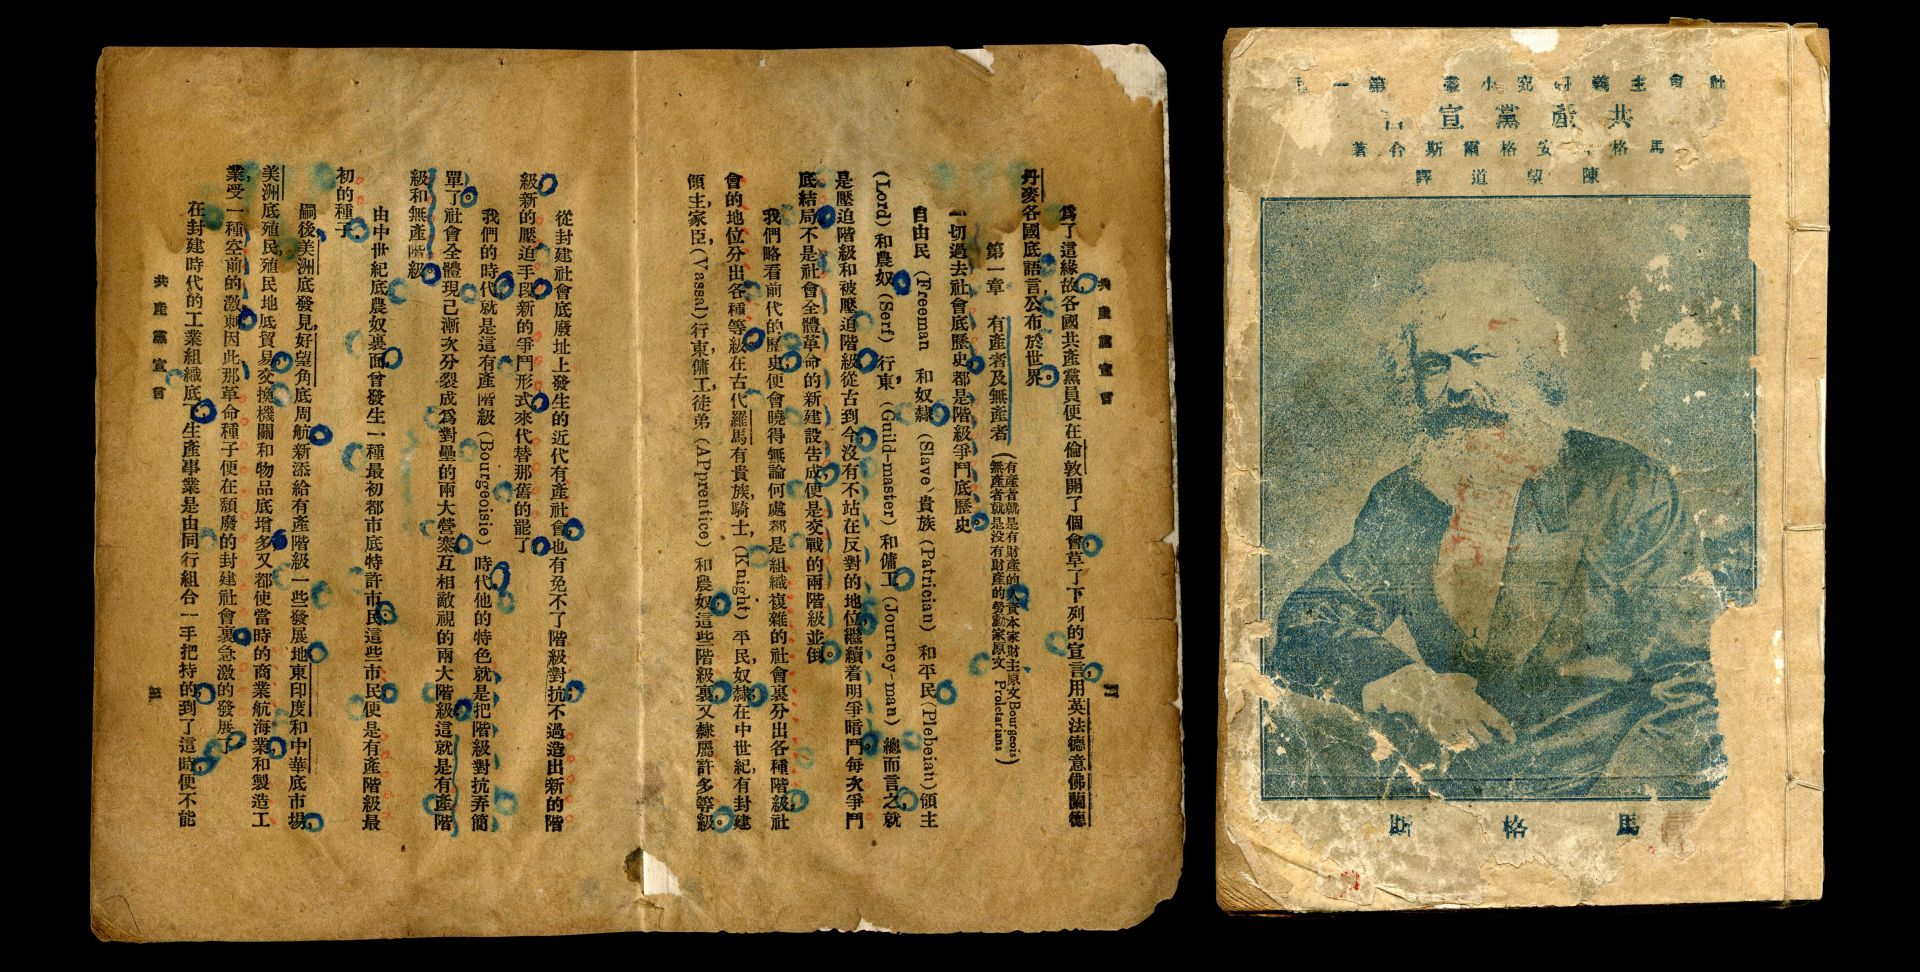 共產黨宣言
二
爲了這緣故各國共產黨員便在倫敦開了個會草了下列的宣言用英法德意佛蘭德
丹麥各國底語言公布於世界。
第一章　有產者及無產者(有產者就是有財產的人資本家財主原文Bourgeois
無產者就是沒有財產的勞動家原文 Proletarians)
一切過去社會底歷史都是階級爭鬥底歷史。
自由民 (Freeman 和奴隸 (Slave、貴族 (Patrician) 和平民(Plebeian)領主
(Lord) 和農奴 (Serf) 行東, (Guild-master) 和傭工 (Journey-man) 總而言之,就
是壓迫階級和被壓迫階級從古到今沒有不站在反對的地位繼續着明爭暗鬥。每次爭鬥
底結局不是社會全體革命的新建設告成便是交戰的兩階級並倒。
我們略看前代的歷史便會曉得無論何處都是組織複雜的社會裏分出各種階級,社
會的地位分出各種等級在古代羅馬有貴族,騎士 (Knight) 平民,奴隸在中世紀有封建
領主,家臣,(Vassal)行東傭工,徒弟 (APprentice) 和農奴這些階級裏又隸屬許多等級。
從封建社會底廢址上發生的近代有產社會也有免不了階級對抗不過造出新的階
級新的壓迫手段新的爭鬥形式來代替那舊的罷了
我們的時代就是這有產階級 (Bourgeoisie) 時代他的特色就是把階級對抗弄簡
單了社會全體現已漸次分裂成爲對壘的兩大營寨互相敵視的兩大階級這就是有產階
級和無產階級。
由中世紀底農奴裏面曾發生一種最初都市底特許市民這些市民便是有產階級最
初的種子
嗣後美洲底發見,好望角底周航新添給有產階級一些發展地東印度和中華底市場,
美洲底殖民,殖民地底貿易交換機關和物品底增多又都使當時的商業航海業和製造工
業受一種空前的激刺因此那革命種子便在頹廢的封建社會裏急激的發展了
在封建時代的工業組織底下生產事業是由同行組合一手把持的到了這時便不能
共產黨宣言
三
社會主義研究小叢 第一
共產黨宣言
馬格 安格爾斯合著
陳望道譯
馬格斯